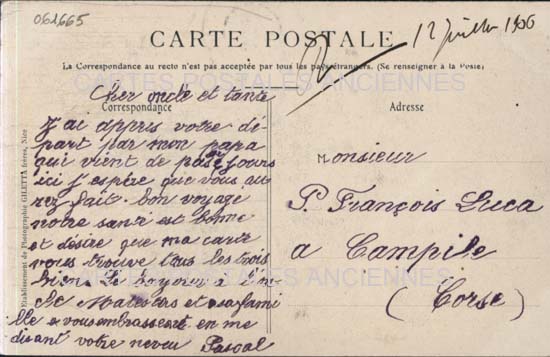 061665
12 Juillet 1906
CARTE POSTALE
La Correspondance au recto n'est pas acceptée par tous les pays étrangers. (Se renseigner à la Poste)
CARTES POSTALES ANCIENNES
Cher oncle et tante
Correspondance
J'ai appris votre dé-
part par mon papa
qui vient de passé 8 jours
ici j'espère que vous au-
rez fait bon voyage
notre santé est bonne
et désire que ma carte
vous trouve tous les trois
bien le bonjour à
et sa fami
lle vous embrassent en me
disant votre neveu Pascal
Adresse
Monsieur
P. François Luca
a Campile
(Corse)
CARTES POSTALES ANCIENNES
Etablissement de Photographie GILETTA frères, Nice